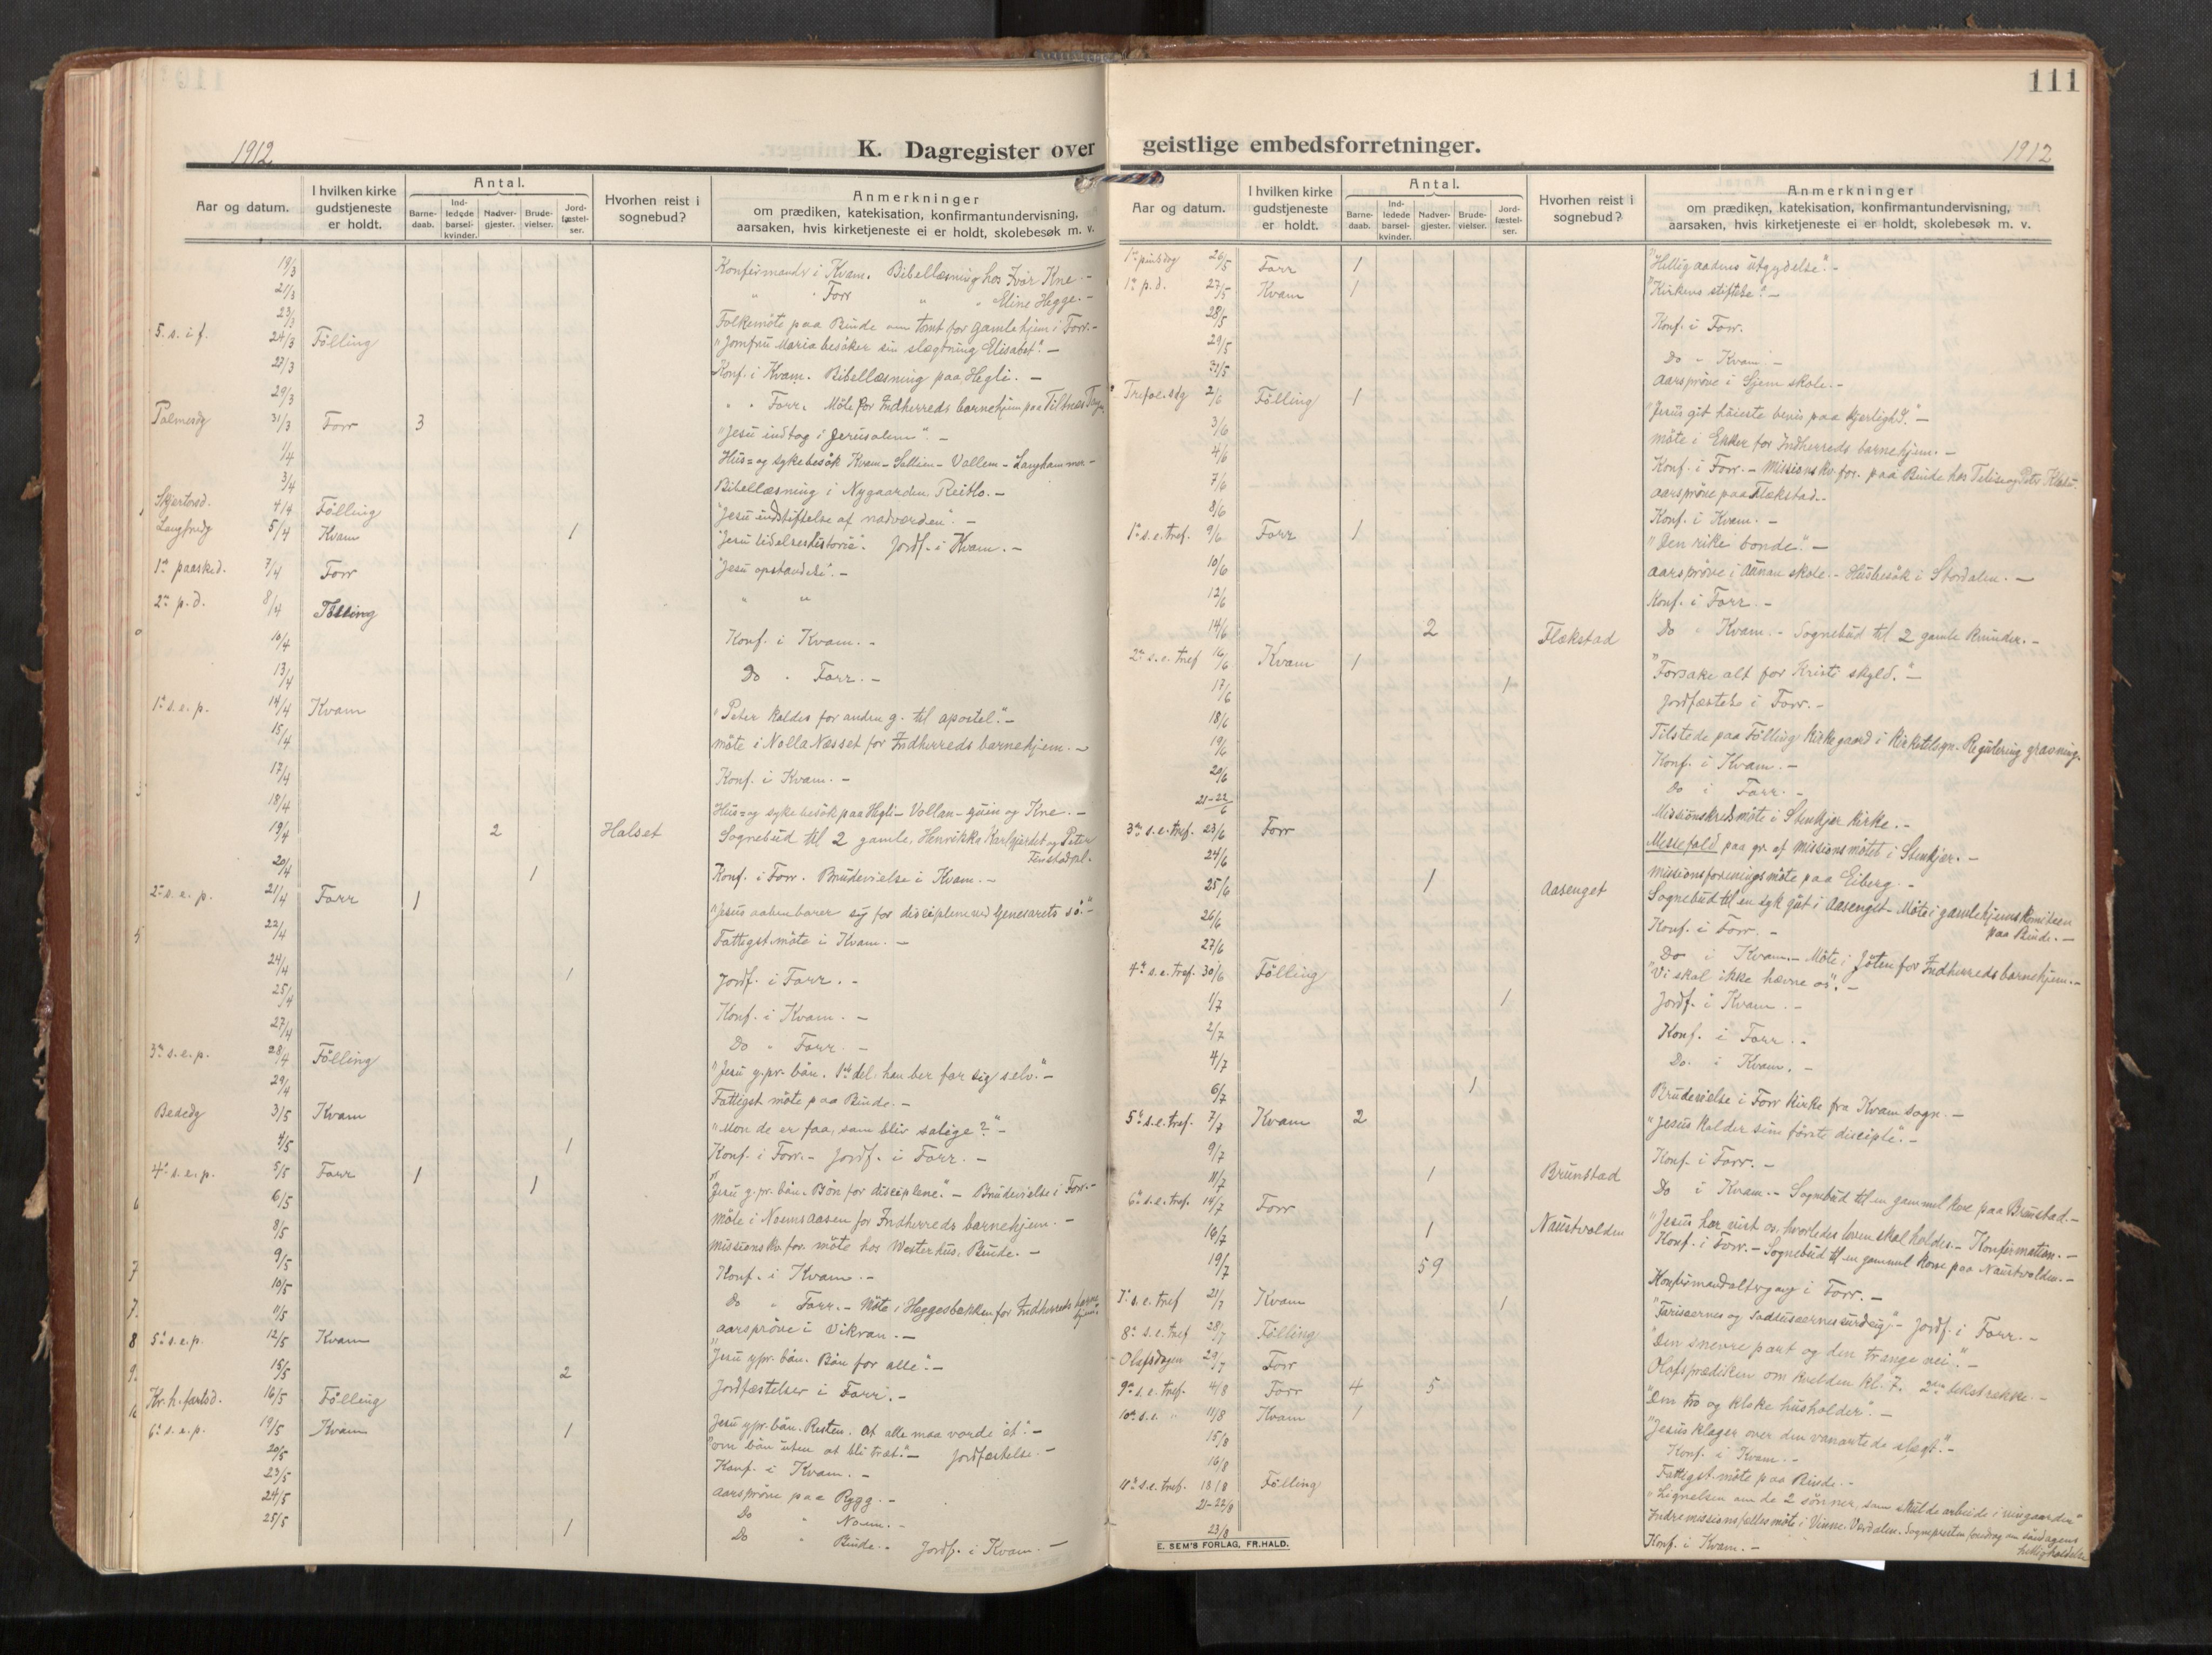 111
1912
K. Dagregister over geistlige embedsforretninger.
1912
Aar og datum.
I hvilken kirke gudstjeneste er holdt.
Antal.
Barne-daab.
Ind-ledede barsel-kvinder.
Nadver-gjester.
Brude-vielser.
Jord-fæstel-ser.
Hvorhen reist i sognebud?
Anmerkninger
om prædiken, katekisation, konfirmantundervisning,
aarsaken, hvis kirketjeneste ei er holdt, skolebesøk m. v.
19/3 Konfirmandr i Kvam. Bibellæsning hos Ivar Kne. -
21/3 " " Forr " " Eline Hegge. -
23/3 Folkemöte paa Binde om tomt for gamlehjem i Forr. -
5. s. i f. 24/3 Fölling "Jomfru Maria besöker sin slægtning Elisabet". -
27/3 Konf. i Kvam. Bibellæsning paa Hegli. -
29/3 " " Forr. Möte for Indherreds barnehjem paa Tiltnes
Palmesdg 31/3 Forr 3 "Jesu indtog i Jerusalem". -
1/4 Hus= og sykebesök Kvam - - Vallem - Langhammer -
3/4 Bibellæsning i Nygaarden Reitlo. -
Skjertorsd. 4/4 Fölling "Jesu indstiftelse af nadverden". -
Langfredg 5/4 Kvam 1 "Jesu lidelseshistorie". Jordf. i Kvam. -
1ste paasked. 7/4 Forr "Jesu opstandelse". -
2en p. d. 8/4 Fölling " "
10/4 Konf. i Kvam. -
13/4 Do " Forr. -
1ste s. e. p. 14/4 Kvam "Peter kaldes for anden g. til apostel." -
15/4 möte i Nolla Næsset for Indherreds barnehjem. -
17/4 Konf. i Kvam. -
18/4 Hus= og sykebesök paa Hegli - Vollan - og Kne. -
19/4 2 Halset Sognebud til 2 gamle, Henrikka Karlgjerdet og Peter
Finstadpl.
20/4 1 Konf. i Forr. Brudevielse i Kvam. -
2en s. e. p. 21/4 Forr 1 "Jesus aabenbarer sig for disciplene ved Genesarets sö." -
22/4 Fattigst. möte i Kvam. -
24/4 1 Jordf. i Forr. -
25/4 Konf. i Kvam. -
27/4 Do " Forr. -
3die s. e. p. 28/4 Fölling "Jesu y.pr. bön. 1ste del: han ber for sig selv." -
29/4 Fattigst. möte paa Binde. -
Bededg 3/5 Kvam "Mon de er faa, som bliv salige?" -
4/5 1 Konf. i Forr. - Jordf. i Forr. -
4de s. e. p. 5/5 Forr 1 1 "Jesu y.pr. bön. Bön for disciplene." - Brudevielse i Forr. -
6/5 Möte i Noems Aasen for Indherreds barnehjem. -
8/5 Missionskv. for. möte hos Westerhus, Binde. -
9/5 Konf. i Kvam. -
10/5 Do " Forr. - Möte i Heggesbakken for Indherreds barnehjem.
11/5 Aarspröve i Vikran. -
5te s. e. p. 12/5 Kvam "Jesu ypr. bön. Bön for alle". -
15/5 2 Jordfæstelser i Forr. -
Kr. h. fartsd. 16/5 Fölling Jesu ypr. bön. Resten. At alle maa vorde èt". -
6te s. e. p. 19/5 Kvam 1 "om bön uten at bli træt." - Jordfæstelse. -
20/5 Konf. i Kvam. -
23/5 Aarspröve paa Rygg. -
24/5 Do " Noem. -
25/5 1 Do " Binde. - Jordf. i Kvam. -
Aar og datum.
I hvilken kirke gudstjeneste er holdt.
Antal.
Barne-daab.
Ind-ledede barsel-kvinder.
Nadver-gjester.
Brude-vielser.
Jord-fæstel-ser.
Hvorhen reist i sognebud?
Anmerkninger
om prædiken, katekisation, konfirmantundervisning,
aarsaken, hvis kirketjeneste ei er holdt, skolebesøk m. v.
1ste pinsdg 26/5 Forr 1 "Helligaadens utgydelse". -
1ste p. d. 27/5 Kvam 1 "Kirkens stiftelse". -
28/5 Konf. i Forr.
29/5 Do " Kvam. -
31/5 Aarspröve i Gjem skole. -
Trefol. sdg 2/6 Fölling 1 "Jesus git höieste bevis paa kjerlighd." -
3/6 möte i Ekker for Indherreds barnehjem. -
4/6 Konf. i Forr. - Missionskv. for. paa Binde hos og Peter
7/6 Aarspröve paa Flekstad. -
8/6 Konf. i Kvam. -
1ste s. e. tref. 9/6 Forr 1 "Den rike bonde." -
10/6 Aarspröve i Aünan skole. - Husbesök i Stordalen. -
12/6 Konf. i Forr. -
14/6 2 Flekstad Do " Kvam. - Sognebud til 2 gamle kvinder. -
2en s. e. tref 16/6 Kvam 1 "Forsake alt for Kristi skyld." -
17/6 1 Jordfæstelse i Forr. -
18/6 Tilstede paa Fölling kirkegaard i kirketilsyn. Regulering gravning.
19/6 Konf. i Kvam. -
20/6 Do i Forr. -
21-22/6 Missionskredsmöte i Stenkjer kirke. -
3die s. e. tref. 23/6 Forr Messefald paa gr. af missionsmötet i Stenkjer. -
24/6 Missionsforeningsmöte paa Eiberg. -
25/6 1 Aasenget Sognebud til en syk gut i Aasenget - Möte i gamlehjemskomiteen
paa Binde. -
26/6 Konf. i Forr. -
27/6 Do i Kvam. - Möte i Jöten for Indherreds barnehjem. -
4de s. e. tref. 30/6 Fölling "Vi skal ikke hævne os". -
1/7 1 Jordf. i Kvam. -
2/7 Konf. i Forr. -
4/7 Do. i Kvam. -
6/7 1 Brudevielse i Forr kirke fra Kvam sogn. -
5te s. e. tref. 7/7 Kvam 2 "Jesus kalder sine förste disciple". -
9/7 Konf. i Forr. -
11/7 1 Brunstad Do i Kvam. - Sognebud til en gammel kone paa Brunstad. -
6te s. e. tref. 14/7 Forr "Jesus har vist os, hvorledes loven skal holdes. - Konfirmation. -
16/7 1 Naustvolden Konf. i Forr. - Sognebud til en gammel kone paa Naustvolden. -
19/7 59 Konfirmandaltrgang i Forr. -
7de s. e. tref 21/7 Kvam 1 "Farisæernes og Saddusæernes surdeig" - Jordf. i Forr. -
8de s. e. tref 28/7 Fölling "Den snevre port og den trange vei". -
Olafsdagen 29/7 Forr Olafsprædiken om kvelden kl. 7. 2en tekstrække. -
9de s. e. tref. 4/8 Forr 4 5 "Den tro og kloke husholder". -
10de s. e. " 11/8 Kvam 1 "Jesus klager over den vanartede slegt". -
15/8 Konf. i Kvam. -
16/8 Fattigst. möte paa Binde. -
11te s. e. tref. 18/8 Fölling "Lignelsen om de 2 sönner, som skulde arbeide i vingaarden"
21-22/8 Indremissionsfællesmöte i Vinne, Værdalen. Sognepresten foredrag om söndagens
helligholdelse
23/8 Konf. i Kvam. -
E. SEM'S FORLAG, FR.HALD.